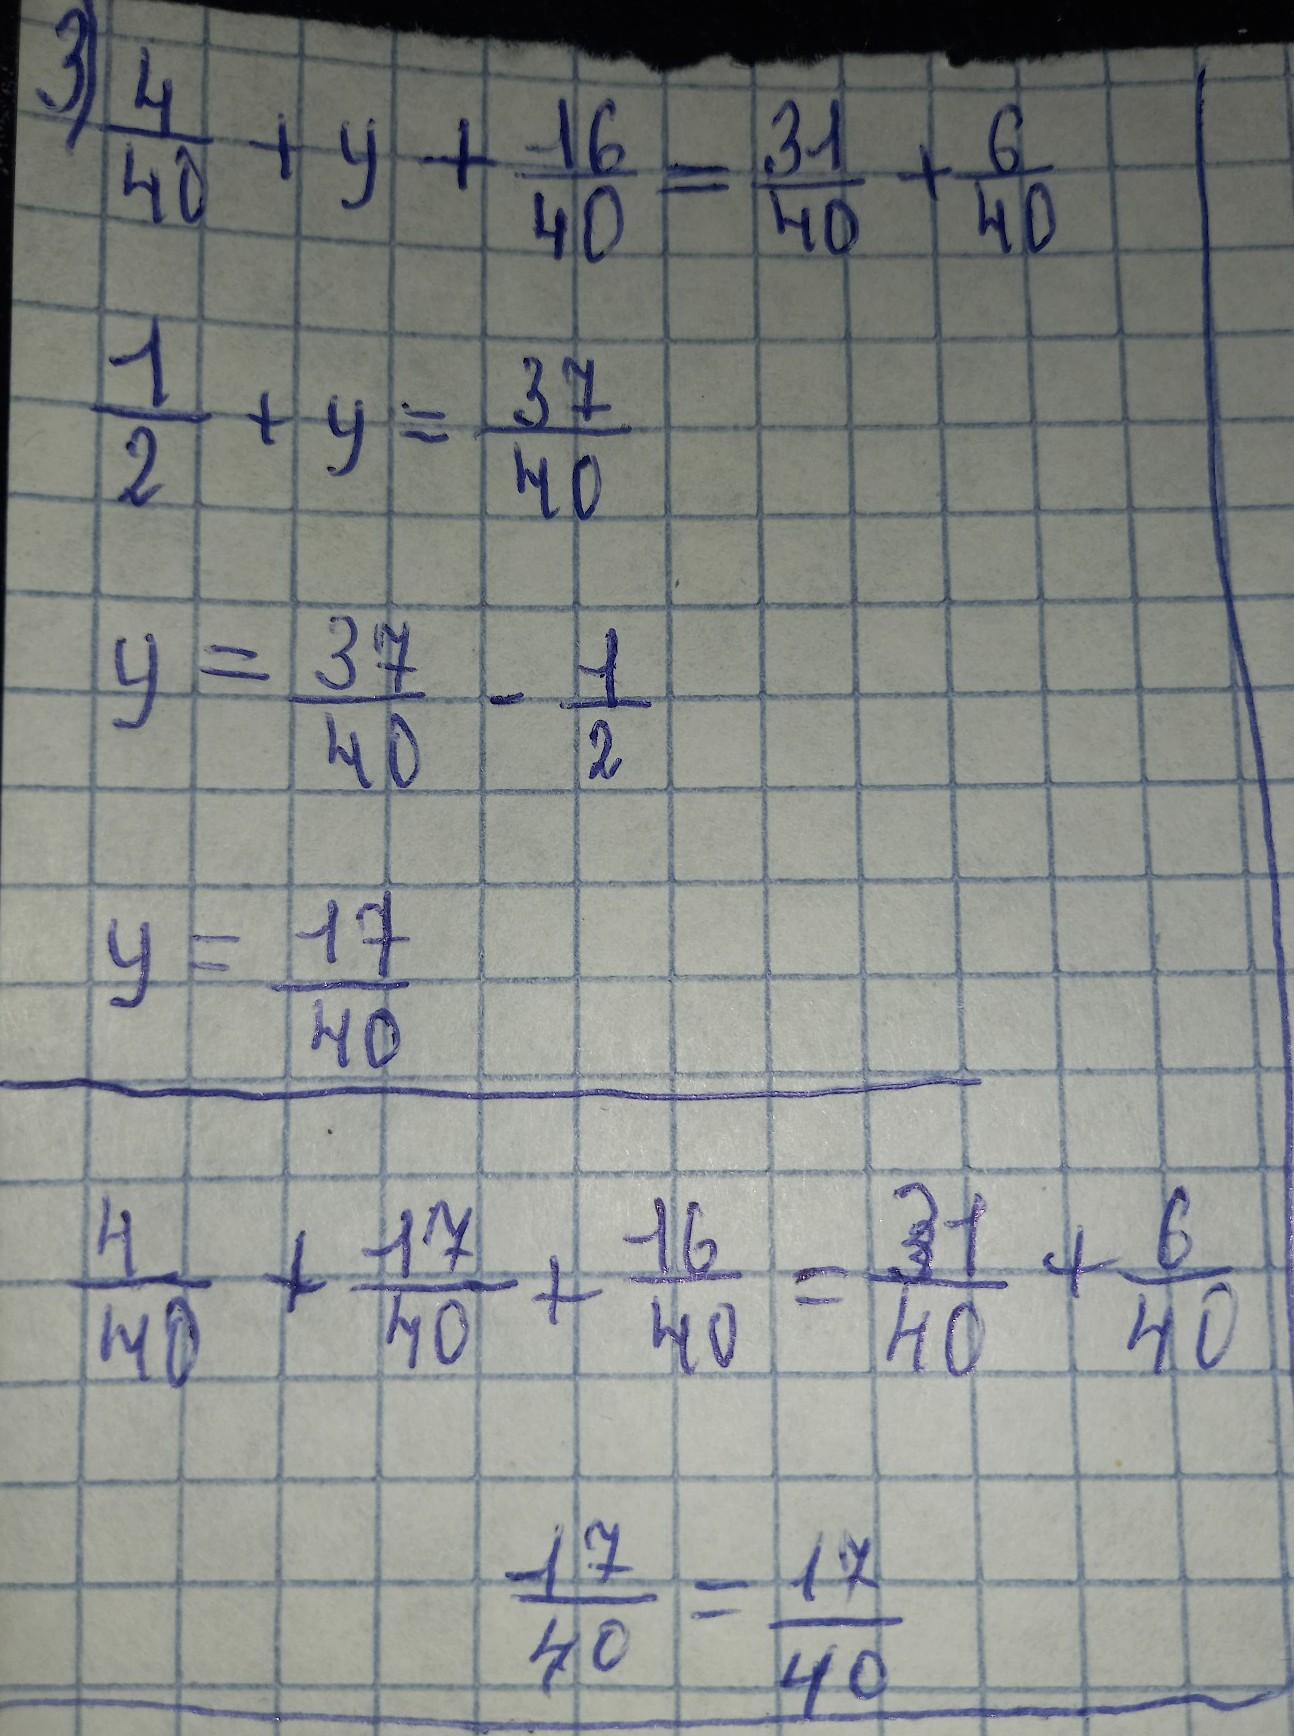 3) 4/40 + y + 16/40 = 31/40 + 6/40
1/2 + y = 37/40
y = 37/40 - 1/2
y = 17/40
4/40 + 17/40 + 16/40 = 31/40 + 6/40
17/40 = 17/40